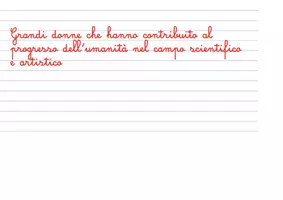 Grandi donne che hanno contribuito al
progresso dell'umanità nel campo scientifico
e artistico